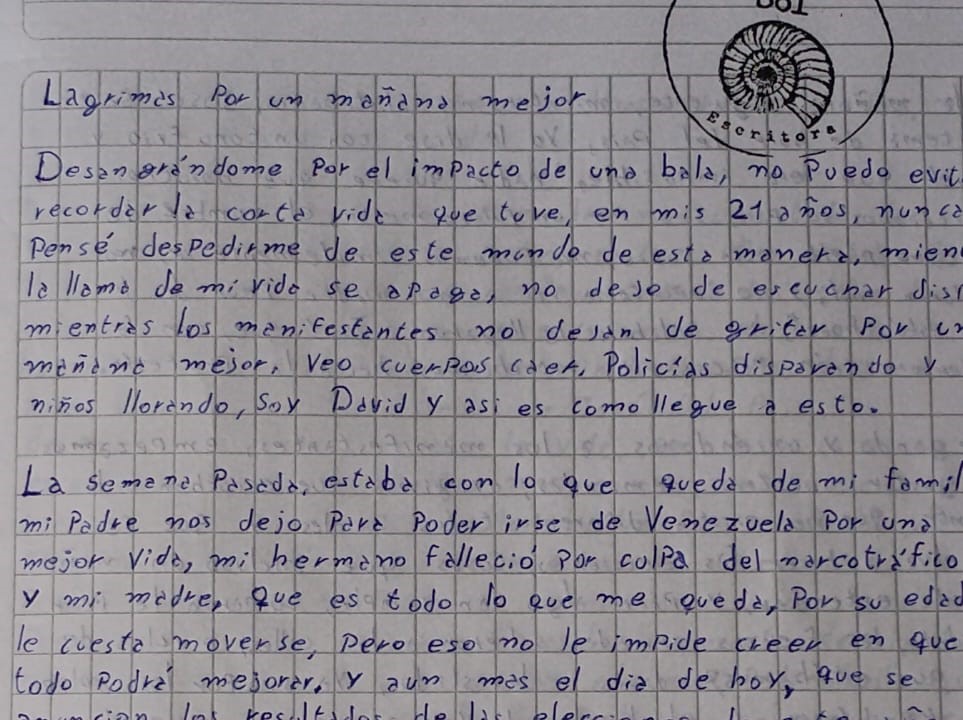 Lagrimas Por un mañana mejor
Escritora
Desangrándome Por el impacto de una bala, no Puedo evit
recordar la corta vida que tuve, en mis 21 años, nunca
Pensé despedirme de este mundo de esta manera, mien
la llama de mi vida se apaga, no dejo de escuchar dis
mientras los manifestantes no dejan de gritar Por un
mañana mejor, veo cuerpos caer, Policías disparando y
niños llorando, Soy David y asi es como llegue a esto.
La semana Pasada, estaba con lo que queda de mi famil
mi Padre nos dejo Para Poder irse de Venezuela Por una
mejor vida, mi hermano falleció Por culpa del narcotráfico
y mi madre, que es todo lo que me queda, Por su edad
le cuesta moverse, Pero eso no le impide creer en que
todo Podrá mejorar, y aun mas el dia de hoy, que se
los resultados de las